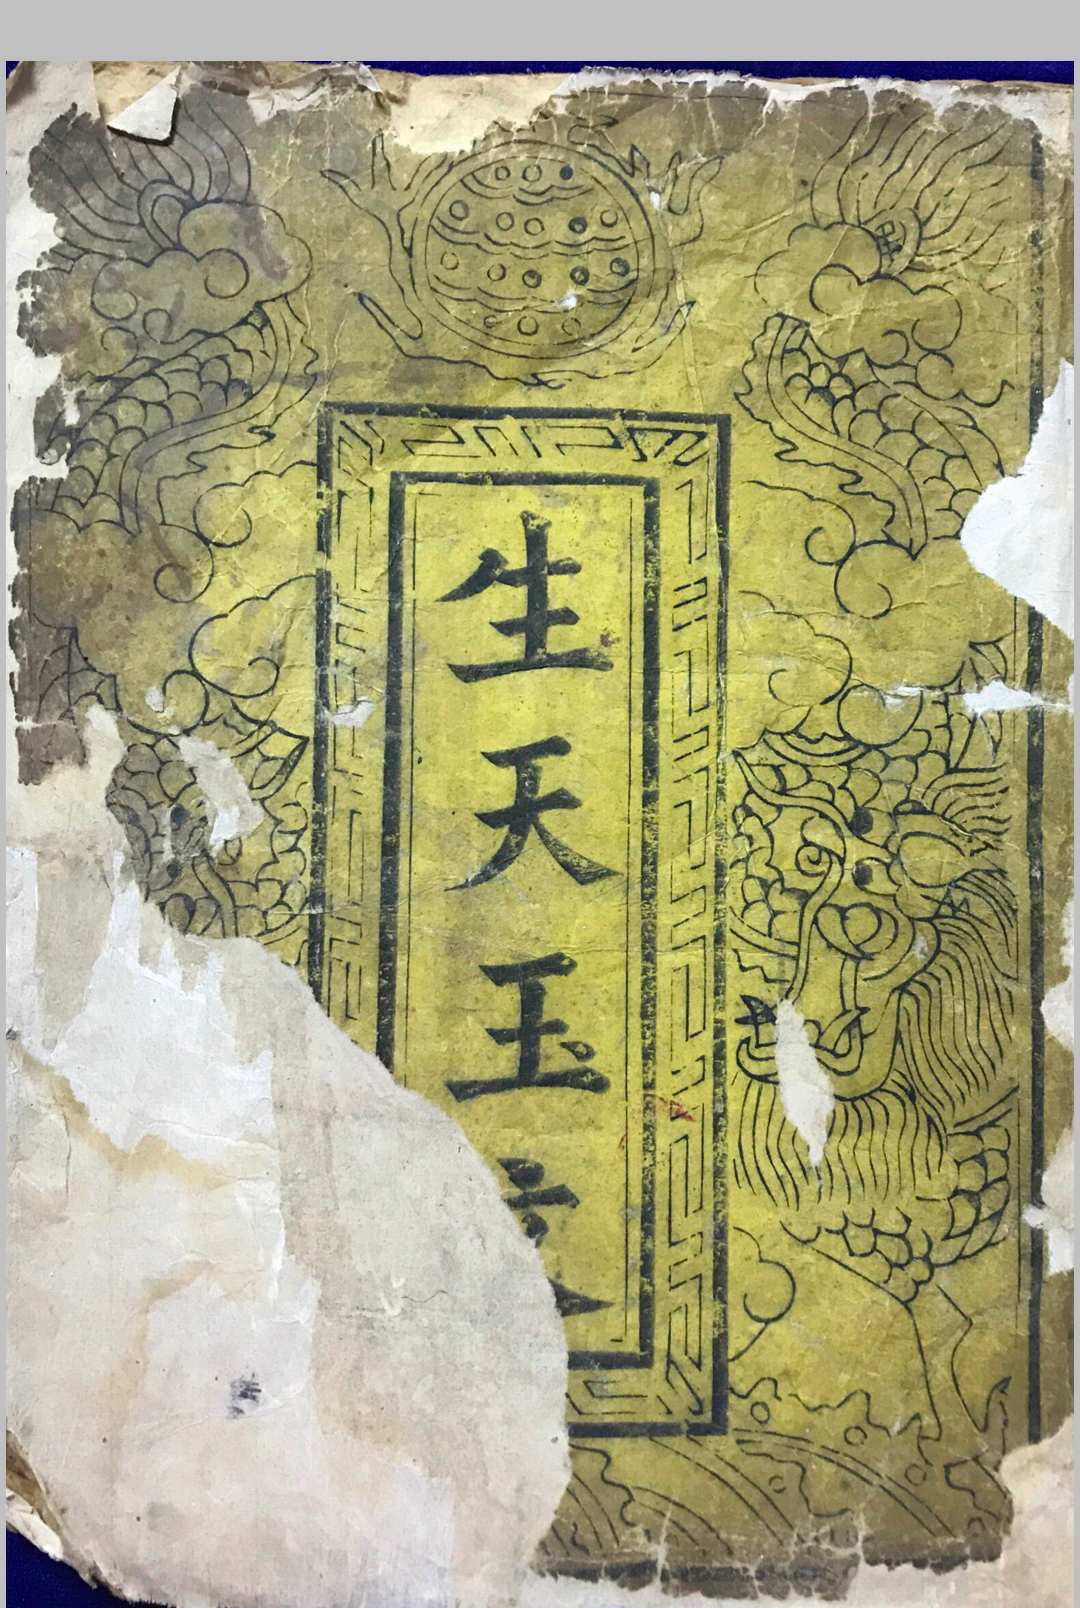 生天玉